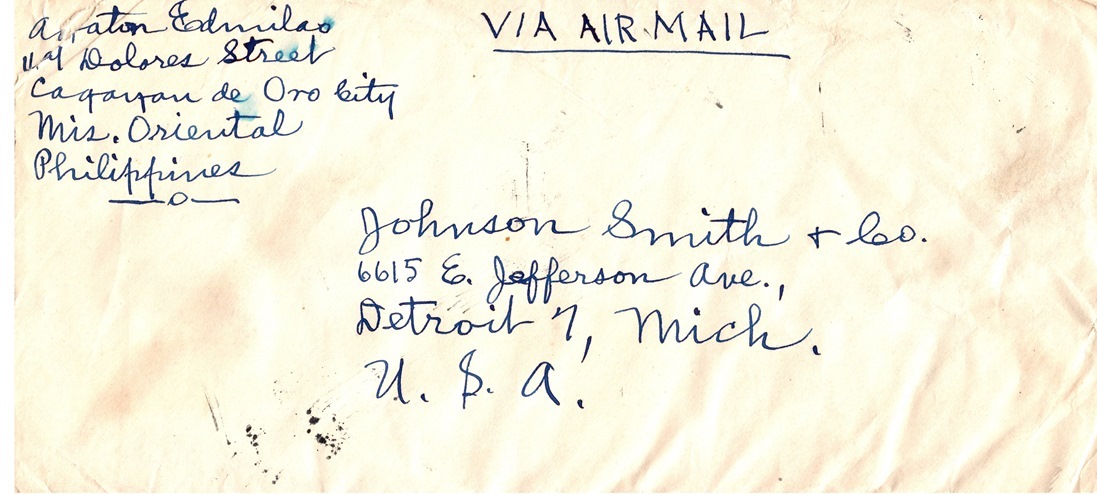 Edmilao
Dolores Street
Cagayan de Oro City
Mis. Oriental
Philippines
VIA AIR MAIL
Johnson Smith & Co.
6615 E. Jefferson Ave.,
Detroit 7, Mich.
U. S. A.